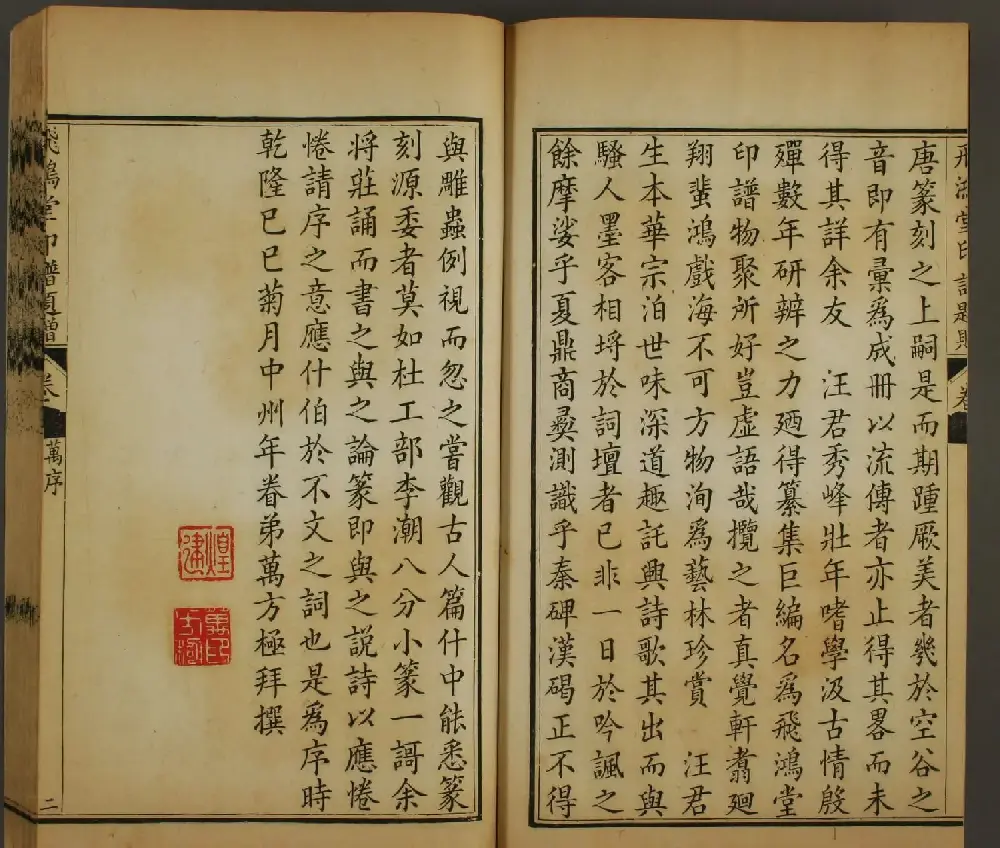 唐篆刻之上嗣是而期踵厥美者幾於空谷之
音即有彙爲成冊以流傳者亦止得其畧而未
得其詳余友 汪君秀峰壯年嗜學汲古情殷
殫數年研辨之力廼得纂集巨編名爲飛鴻堂
印譜物聚所好豈虛語哉攬之者真覺軒翥廻
翔蜚鴻戲海不可方物洵爲藝林珍賞 汪君
生本華宗泊世味深道趣託興詩歌其出而與
騷人墨客相埒於詞壇者已非一日於吟諷之
餘摩挲乎夏鼎商彝測識乎秦碑漢碣正不得
與雕蟲例視而忽之嘗觀古人篇什中能悉篆
刻源委者莫如杜工部李潮八分小篆一謌余
將莊誦而書之與之論篆即與之説詩以應惓
惓請序之意應什伯於不文之詞也是爲序時
乾隆已巳菊月中州年眷弟萬方極拜撰
飛鴻堂印譜題贈
卷一
萬序
二